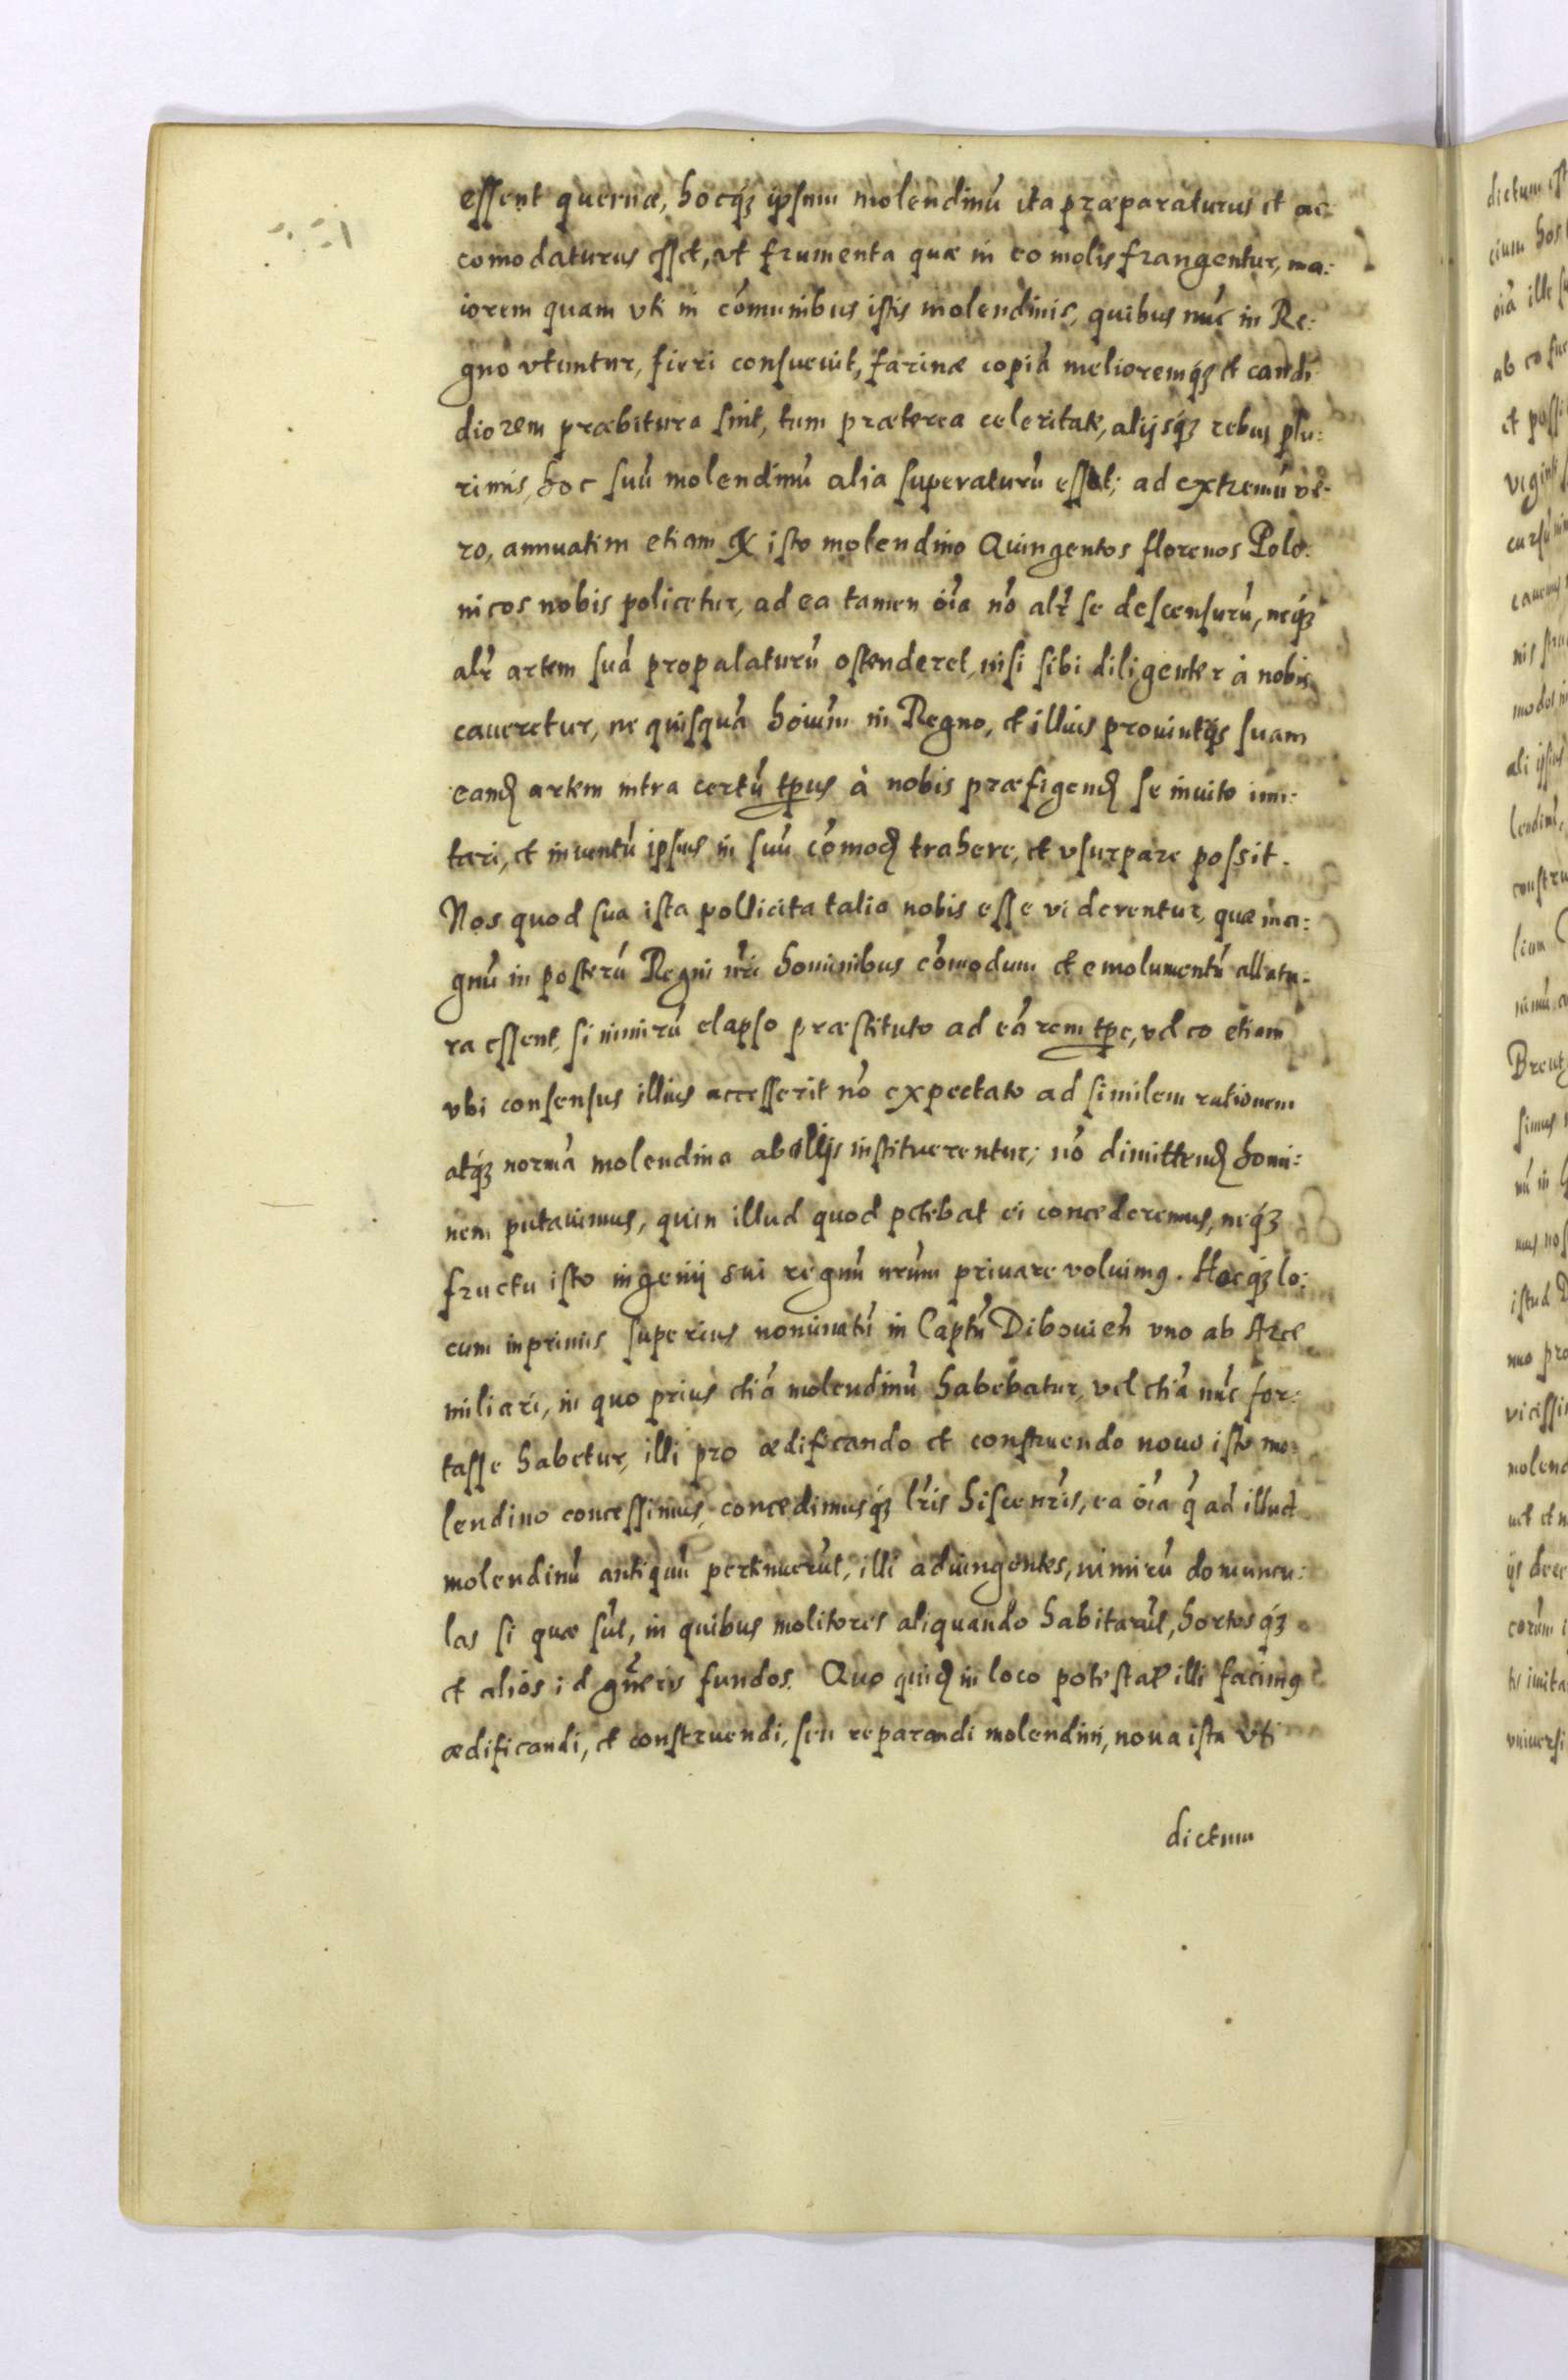 essent quernæ, hocq́ꝫ ipsum molendinū ita præparaturus et ac:
comodaturus esset, ut frumenta quæ in eo molis frangentur, ma:
iorem quam vti in cōmunibus istis molendinis, quibus nūc in Re:
gno vtuntur, fieri consuevit, farinæ copiā melioremq́ꝫ et candi
diorem præbitura sint, tum præterea celeritate, alijsq́ꝫ rebus plu:
rimis, hoc suū molendinū alia superaturū esset; ad extremū ve:
ro, annuatim etiam ex isto molendino Quingentos florenos Polo:
nicos nobis policetur, ad ea tamen oīa nō alr̄ se descensurū, neq́ꝫ
alr̄ artem suā propalaturū ostenderet, nisi sibi diligenter à nobis
caueretur, ne quisquā hoiūm in Regno, et illius prouintijs suam
eand artem intra certū tpus à nobis præfigend se inuito imi:
tari, et inuentū ipsius in suū cōmod trahere, et vsurpare possit.
Nos quod sua ista pollicita talia nobis esse viderentur, quæ ma:
gnū in posterū Regni nr̄i hominibus cōmodum et emolumentū allatu:
ra essent, si nimirū elapso præstituto ad eā rem tpe, vel eo etiam
vbi consensus illius accesserit nō expectato ad similem rationem
atq́ꝫ normā molendina ab illijs instituerentur; nō dimittend homi:
nem putauimus, quin illud quod petebat ei concederemus, neq́ꝫ
fructu isto ingenij sui regnū nrūm priuare voluimꝰ. Hocq́ꝫ lo:
cum inprimis superius nominatū in Captū Diboviēn vno ab Arce
miliari, in quo prius etiā molendinū habebatur, vel etiā nūc for:
tasse habetur, illi pro ædificando et construendo nouo isto mo:
lendino concessimus, concedimusq́ꝫ lr̄is hisce nr̄is, ea oīa q̄ ad illud
molendinū antiquū pertinuerūt, illi adiungentes, nimirū domuncu:
las si quæ sūt, in quibus molitores aliquando habitarūt, hortosq́ꝫ
et alios id gn̄eris fundos. Quo quid in loco potestatē illi facimꝰ
ædificandi, et construendi, seu reparandi molendini, noua ista vti
dictum